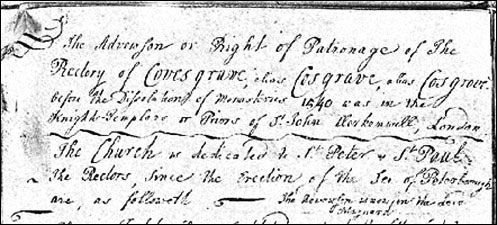 The Advowson or Right of Patronage of The
Rectory of Covesgrave, alias Cesgrave, alias Cosgrove
before the Dissolution of Monasteries 1540 was in the
Knights Templars or Priors of St. John Clerkenwell, London
The Church is dedicated to St. Peter & St. Paul
the Rectors, since the Erection of the See of Peterborough
are, as followeth
The Advowson in the Lord
Maynard